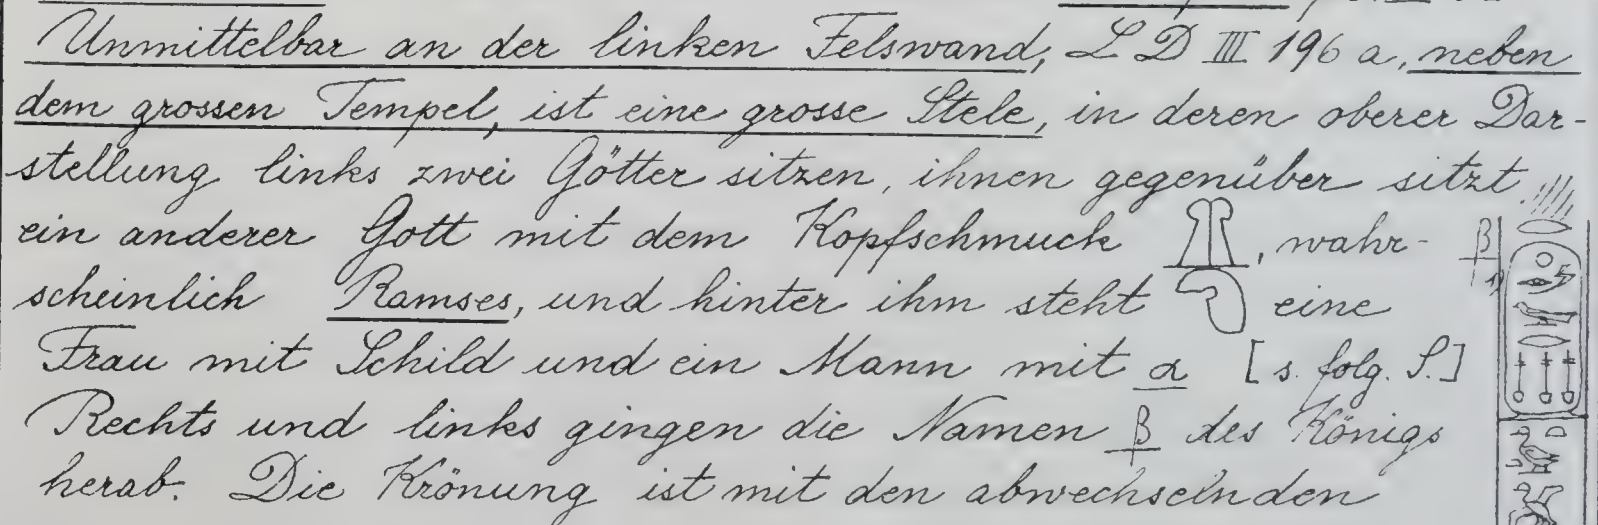 Unmittelbar an der linken Felswand, L D III 196 a, neben
dem grossen Tempel, ist eine grosse Stele, in deren oberer Dar-
stellung links zwei Götter sitzen, ihnen gegenüber sitzt
ein anderer Gott mit dem Kopfschmuck , wahr- β
scheinlich Ramses, und hinter ihm steht eine 1)
Frau mit Schild und ein Mann mit α [s. folg. S.]
Rechts und links gingen die Namen β des Königs
herab. Die Krönung ist mit den abwechselnden